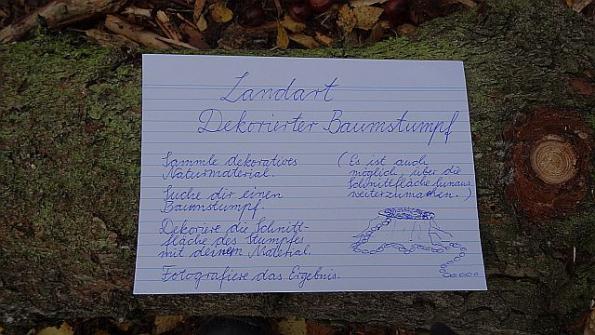 Landart
Dekorierter Baumstumpf
Sammle dekoratives
Naturmaterial.
Suche dir einen
Baumstumpf.
Dekoriere die Schnitt-
fläche des Stumpfes
mit deinem Material.
Fotografiere das Ergebnis.
(Es ist auch
möglich, über die
Schnittfläche hinaus
weiterzumachen.)